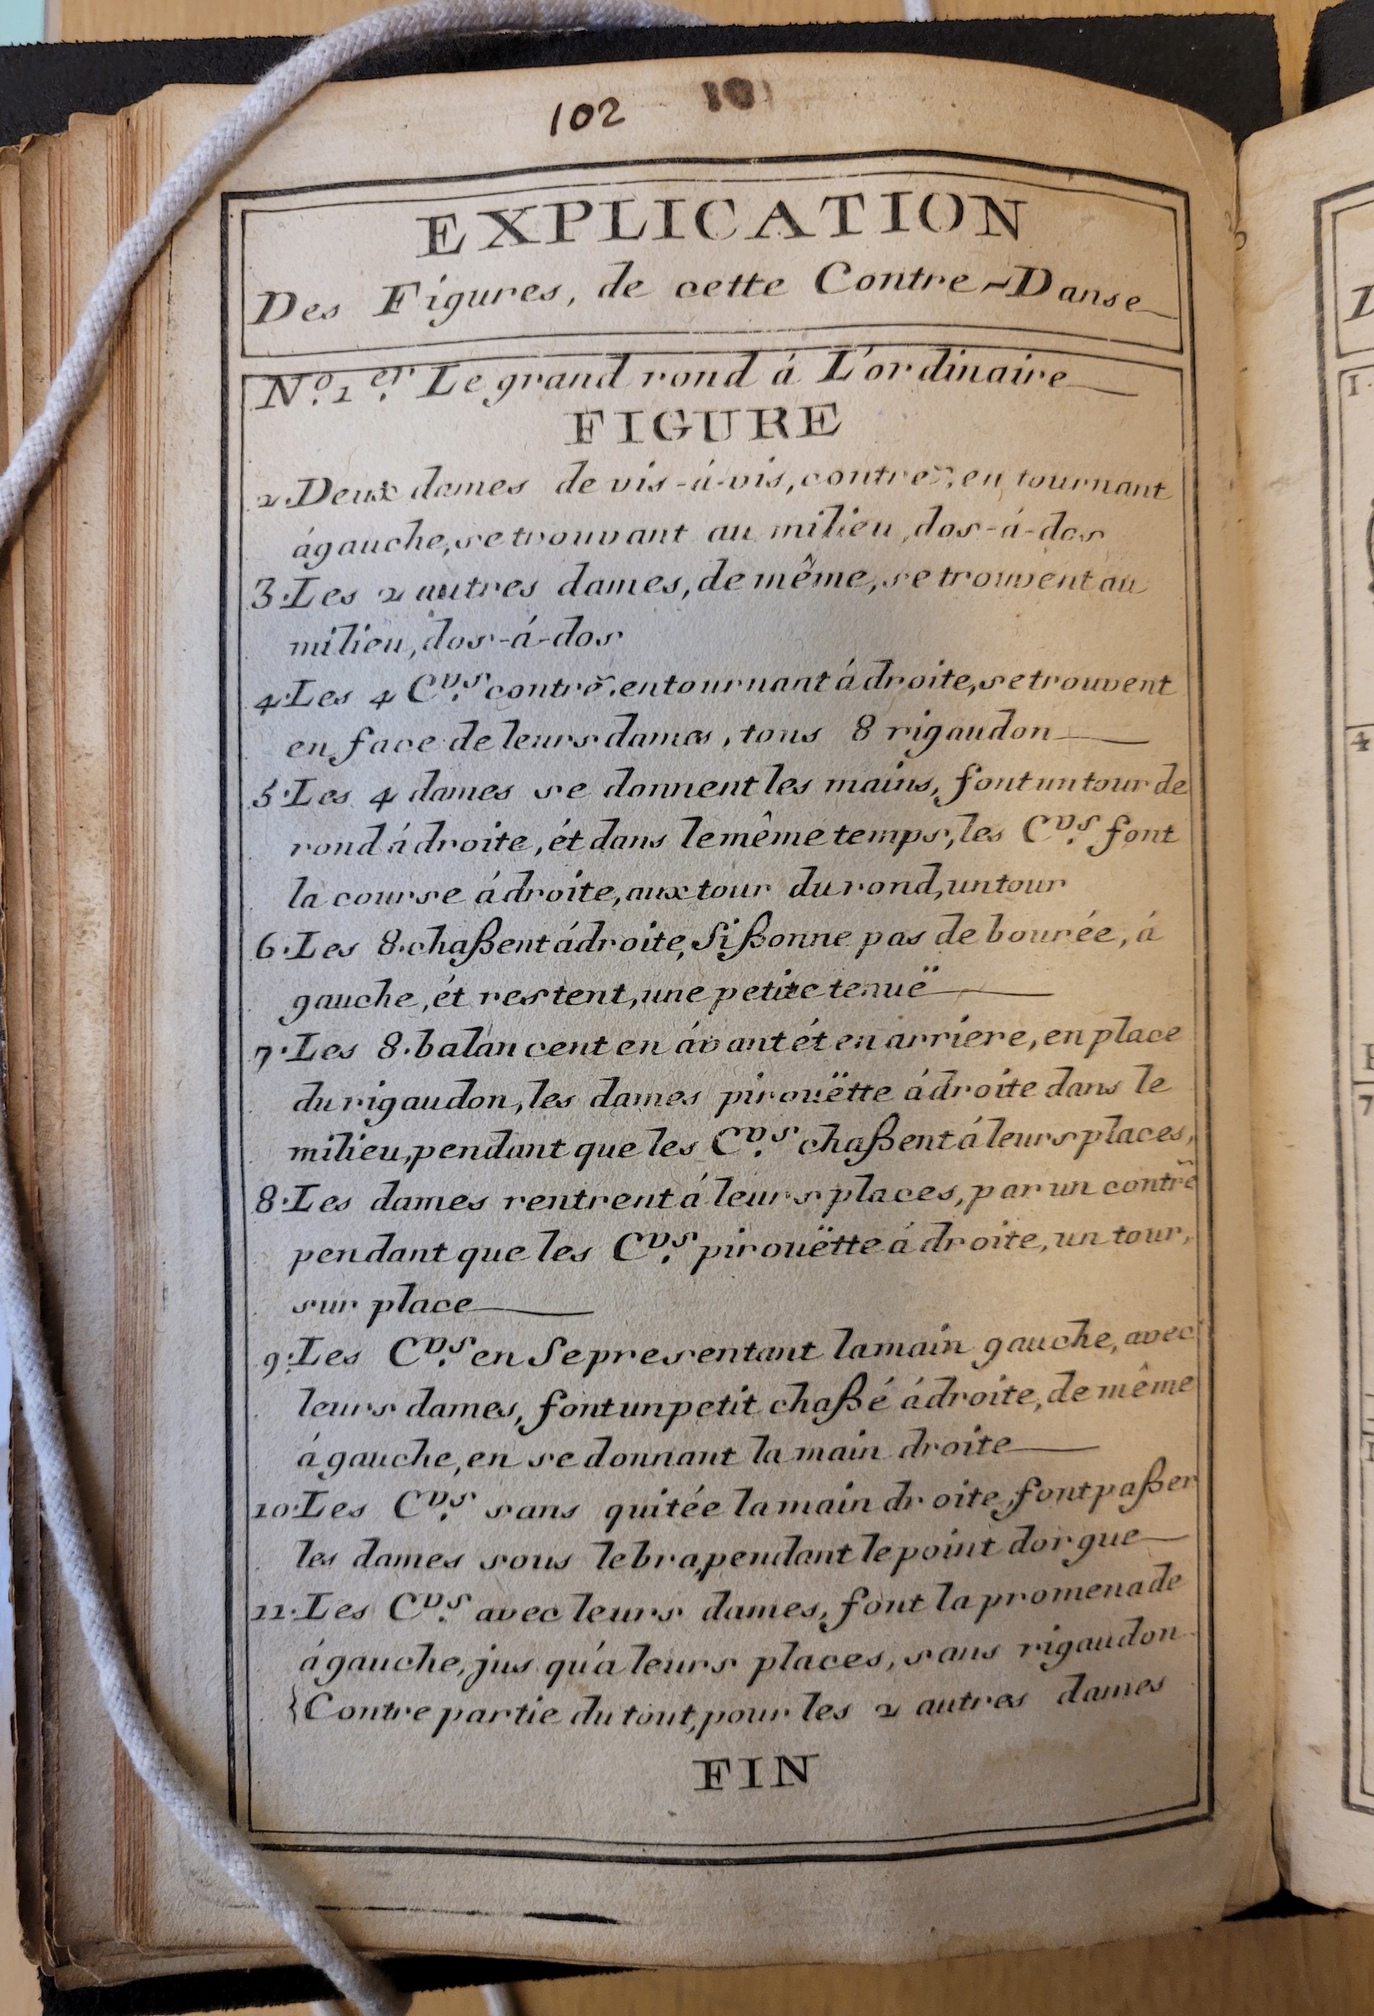 102 101
EXPLICATION
Des Figures, de cette Contre-Danse
N.º 1.er Le grand rond á L'ordinaire
FIGURE
2. Deux dames de vis-á-vis, contre~, en tournant
ágauche, se trouvant au milieu, dos-á-dos
3. Les 2 autres dames, de même, se trouvent au
milieu, dos-á-dos
4. Les 4 C.vs contre~. en tournant á droite, se trouvent
en face de leurs dames, tous 8 rigaudon
5. Les 4 dames se donnent les mains, font un tour de
rond á droite, ét dans le même temps, les C.vs font
la course á droite, aux tour du rond, un tour
6. Les 8. chaßent ádroite, Sißonne pas de bourée, á
gauche, ét restent, une petite tenuë
7. Les 8. balancent en ávant ét en arriere, en place
du rigaudon, les dames pirouëtte á droite dans le
milieu, pendant que les C.vs chaßent á leurs places,
8. Les dames rentrent á leurs places, par un contrẽ
pendant que les C.vs pirouëtte á droite, un tour,
sur place
9. Les C.vs en Se presentant la main gauche, avec
leurs dames, font un petit chaßé ádroite, de même
á gauche, en se donnant la main droite
10. Les C.vs sans quitée la main droite, font paßer
les dames sous le bra, pendant le point dorgue
11. Les C.vs avec leurs dames, font la promenade
á gauche, jus qu'a leurs places, sans rigaudon
{Contre partie du tout, pour les 2 autres dames
FIN
1.
4
7